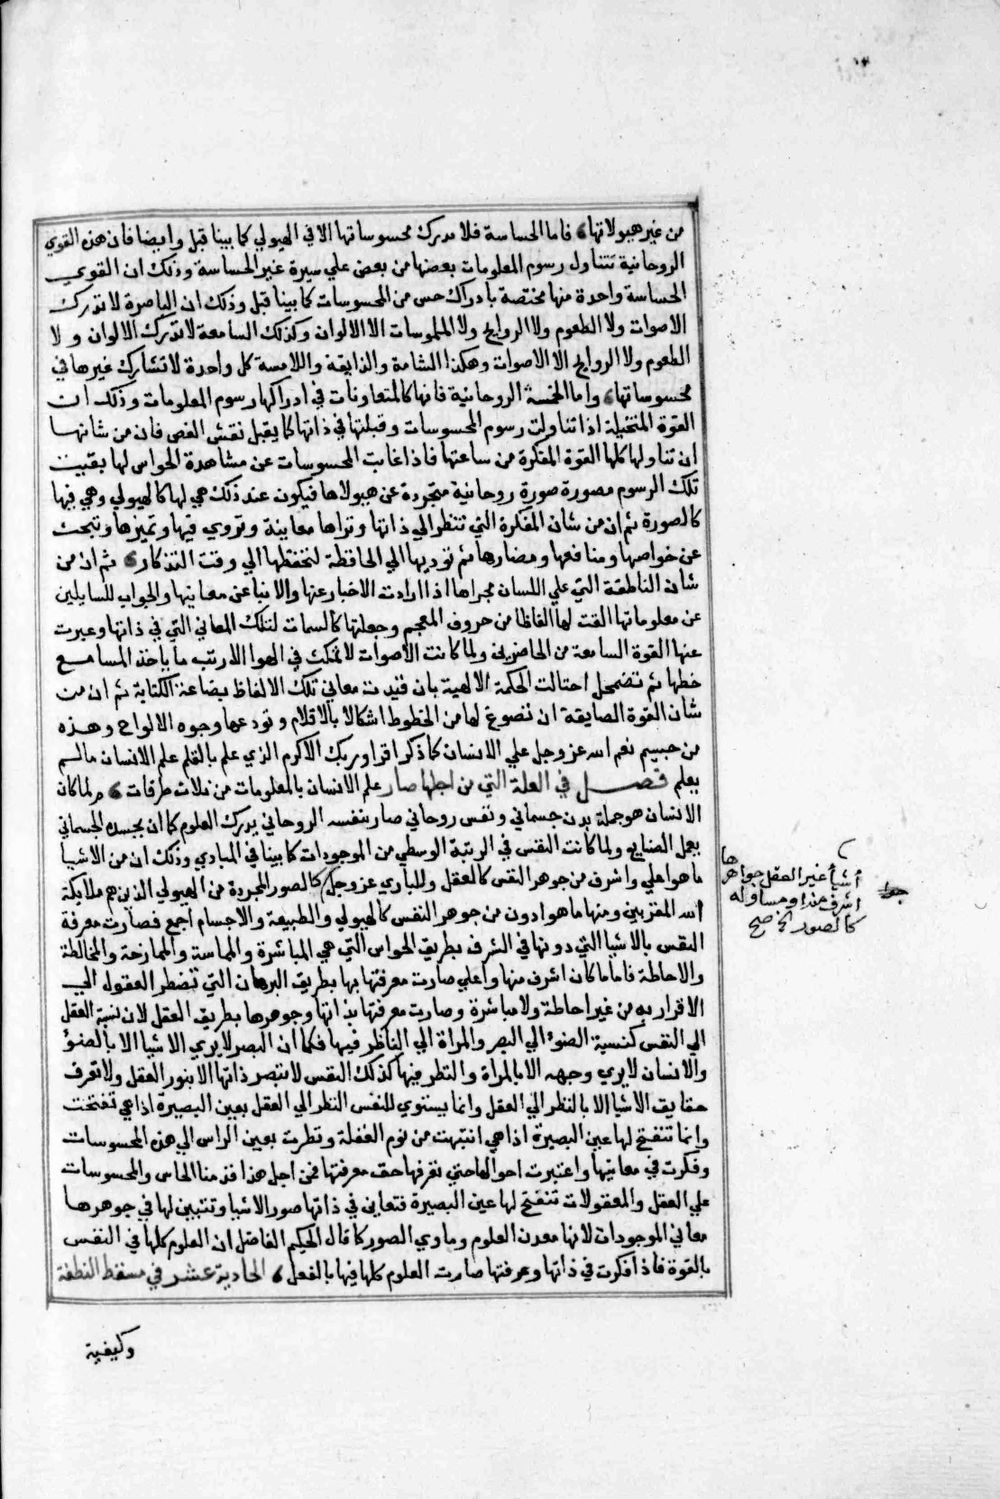 من غير هيولاتها فاما الحساسة فلا تدرك محسوساتها الا في الهيولي كما بينا قبل وايضا فان هذه القوي
الروحانية تتناول رسوم المعلومات بعضها من بعض علي سيرة غير الحساسة وذلك ان القوي
الحساسة واحدة منها مختصة بادراك حس من المحسوسات كما بينا قبل وذلك ان الباصرة لا تدرك
الاصوات ولا الطعوم ولا الروايح ولا الملموسات الا الالوان وكذلك السامعة لا تدرك الالوان ولا
الطعوم ولا الروايح الا الاصوات وهكذا الشامة والذايقة واللامسة كل واحدة لا تشارك غيرها في
محسوساتها واما الخمسة الروحانية فانها كالمتعاونات في ادراكها رسوم المعلومات وذلك ان
القوة المتخيلة اذا تناولت رسوم المحسوسات وقبلتها في ذاتها كما يقبل نقش الفص فان من شانها
ان تناولها كلها القوة المفكرة من ساعتها فاذا غابت المحسوسات عن مشاهدة الحواس لها بقيت
تلك الرسوم مصورة صورة روحانية متجردة عن هيولاها فيكون عند ذلك هي لها كالهيولي وهي فيها
كالصورة ثم ان من شان المفكرة التي تنظر الي ذاتها وتراها معاينة وتروي فيها وتميزها وتبحث
عن خواصها ومنافعها ومضارها ثم توديها الي الحافظة لتحفظها الي وقت التذكار ثم ان من
شان الناطقة التي علي اللسان مجراها اذا ارادت الاخبار عنها والانبا عن معانيها والجواب للسايلين
عن معلوماتها الفت لها الفاظا من حروف المعجم وجعلتها كالسمات لتلك المعاني التي في ذاتها وعبرت
عنها القوة السامعة من الحاضرين ولما كانت الاصوات لا تمكث في الهوا الا ريث ما ياخذ المسامع
حظها ثم تضمحل احتالت الحكمة الالهية بان قيدت معاني تلك الالفاظ بضاعة الكتابة ثم ان من
شان القوة الصايغة ان تصوغ لها من الخطوط اشكالا بالاقلام وتودعها وجوه الالواح وهذه
من جسيم نعم الله عز وجل علي الانسان كما ذكر اقرا وربك الاكرم الذي علم بالقلم علم الانسان مالم
يعلم فصل في العلة التي من اجلها صار علم الانسان بالمعلومات من ثلاث طرقات ولما كان
الانسان هو جملة بدن جسماني ونفس روحاني صار بنفسه الروحاني يدرك العلوم كما ان بجسده الجسماني
يعمل الصنايع ولما كانت النفس في الرتبة الوسطي من الموجودات كما بينا في المبادي وذلك ان من الاشيا
ما هو اعلي واشرف من جوهر النفس كالعقل وللباري عز وجل كالصور المجردة من الهيولي الذين هم ملايكة
الله المقربين ومنها ما هو ادون من جوهر النفس كالهيولي والطبيعة والاجسام اجمع فصارت معرفة
النفس بالاشيا التي دونها في الشرف بطريق الحواس التي هي المباشرة والمماسة والممازجة والمخالطة
والاحاطة فاما ما كان اشرف منها واعلي صارت معرفتها بها بطريق البرهان التي تضطر العقول الي
الاقرار به من غير احاطة ولا مباشرة وصارت معرفتها بذاتها وجوهرها بطريق العقل لان نسبة العقل
الي النفس كنسبة الضوء الي البصر والمراة الي الناظر فيها فكما ان البصر لا يري الاشيا الا بالضوء
والانسان لا يري وجهه الا بالمراة والنظر فيها كذلك النفس لا تبصر ذاتها الا بنور العقل ولا تعرف
حقايق الاشيا الا بالنظر الي العقل وانما يستوي للنفس النظر الي العقل بعين البصيرة اذا هي تفتحت
وانما تنفتح لها عين البصيرة اذا هي انتبهت من نوم الغفلة ونظرت بعين الراس الي هذه المحسوسات
وفكرت في معانيها واعتبرت احوالها حتي تعرفها حق معرفتها فمن اجل هذا قدمنا الحاس والمحسوسات
علي العقل والمعقولات تنفتح لها عين البصيرة فتعاين في ذاتها صور الاشيا وتتبين لها في جوهرها
معاني الموجودات لانها معدن العلوم وماوي الصور كما قال الحكيم الفاضل ان العلوم كلها في النفس
بالقوة فاذا فكرت في ذاتها وعرفتها صارت العلوم كلها فيها بالفعل الحادية عشر في مسقط النطفة
وكيفية
اشيا غير العقل جواهرها
اشرف منه او مساو له
كالصور صح